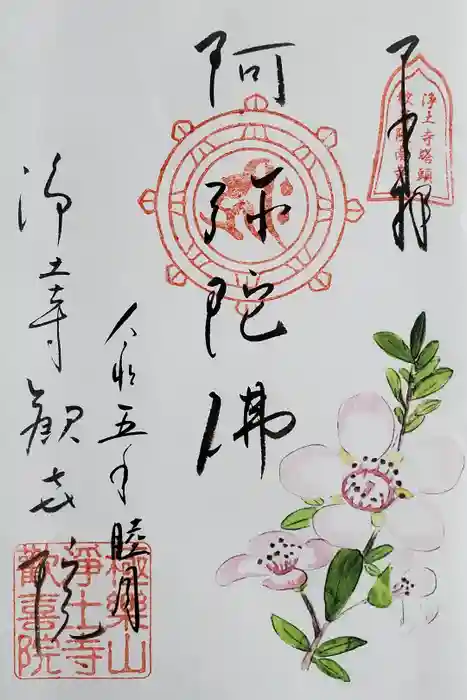 奉拝
浄土寺塔頭
阿弥陀佛
令和五年睦月
浄土寺歓喜院
極樂山
淨土寺
歡喜院